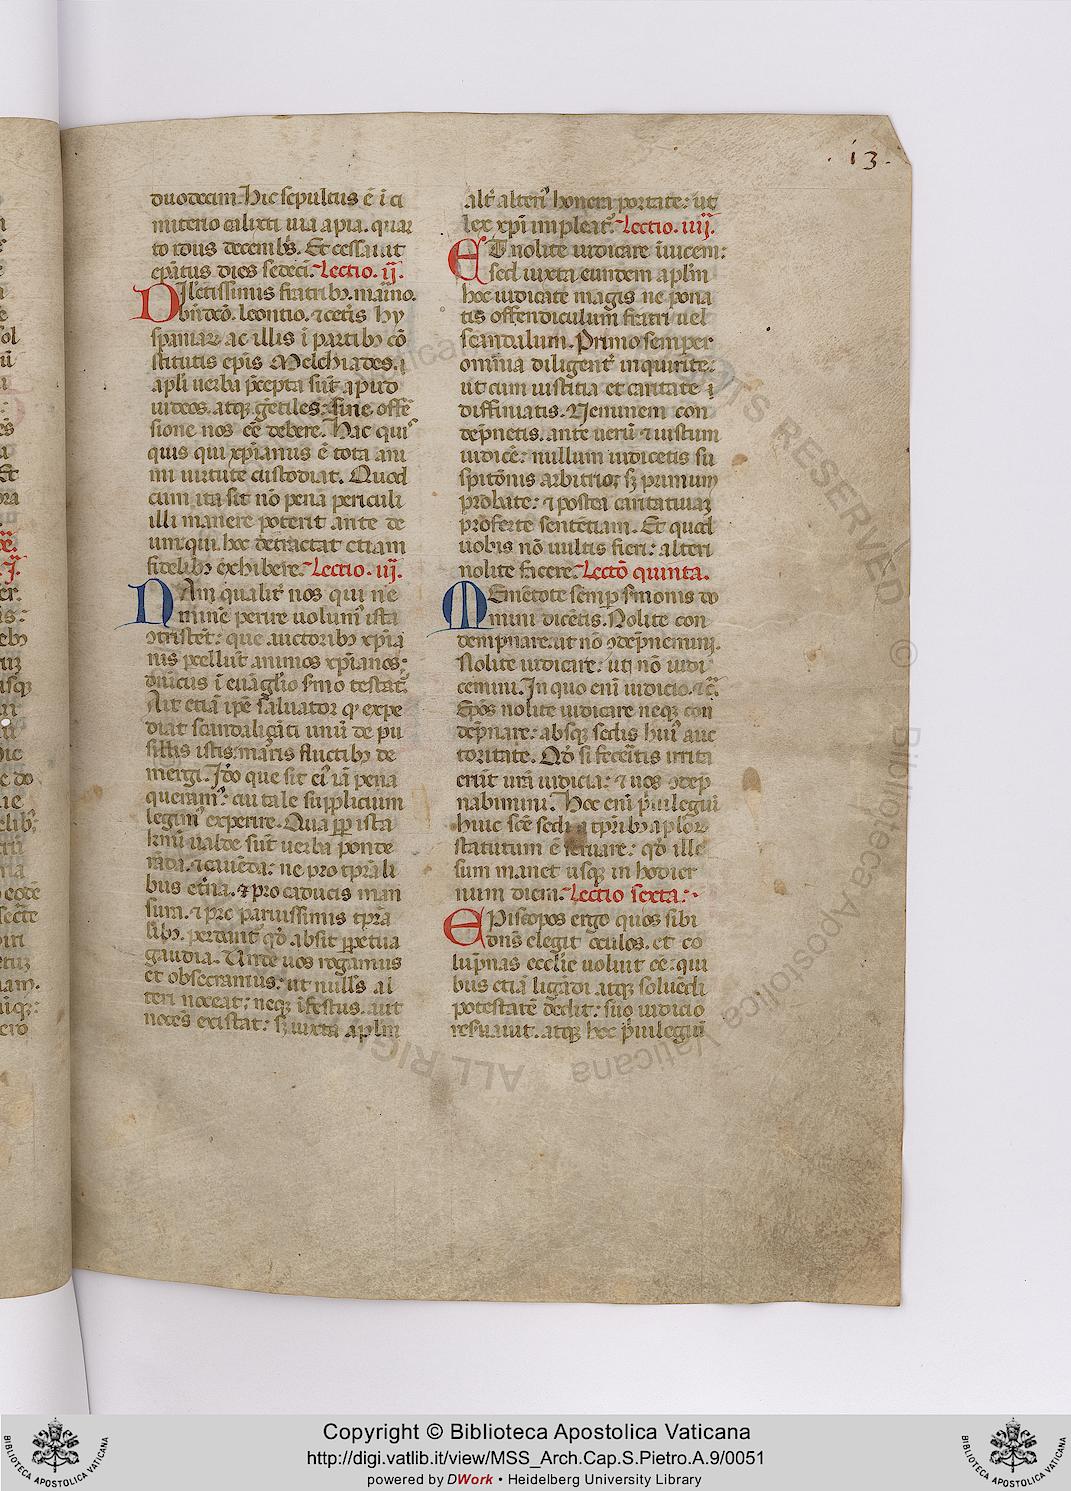 .i3.
duodecim. Hic sepultus ē ī ci
miterio calixti uia apia. quar
to idus decembᵇs. Et cessauit
ep̄atus dies sedeci̅. Lectio. ij.
Dilectissimis fratribꝫ. marino.
leontio. ⁊ cet̄is hy
spaniaꝝ ac illis ī partibꝫ cō
stitutis ep̄is Melchiades.
apl̄i uerba p̄cepta sūt apud
iudeos. atqꝫ gētiles: sine offē
sione nos eē debere. Hac qui
quis qui xp̄ianus ē tota ani
mi uirtute custodiat. Quod
cum ita sit nō pena periculi
illi manere poterit ante de
um: qui hoc detractat etiam
fidelibꝫ exhibere. Lectio. iij.
Nam qualit̄ nos qui ne
minē perire uolum᾿ ista
ꝯtristēt: que auctoribꝫ xp̄ia
nis pcellūt animos xp̄ianos:
dn̄icus ī euāglio s̄mo testat᷑.
Ait etiā ip̄e saluator qꝛ expe
diat scandaliçāti unū de pu
sillis istis maris fluctibꝫ de
mergi. Ido que sit ei᾿ iā pena
queram᾿: cui tale supplicium
legim᾿ experire. Qua ꝓp ista
k̄mi ualde sūt uerba ponde
rāda. ⁊ cauēda: ne pro tp̄ali
bus et̄na. ⁊ pro caducis man
sura. ⁊ pro paruissimis tp̄ra
libꝫ. perdant᷑ qd̄ absit ꝑpetua
gaudia. Unde uos rogamus
et obsecramus: ut nulls̄ al
teri noceat: neqꝫ īfestus. aut
nocēs existat: sꝫ iuxta apl̄m
alt̄ alteri᾿ honera portate: ut
lex xp̄i impleat᷑. Lectio. iiij.
Et nolite iudicare īuicem:
sed iuxta eundem apl̄m
hoc iudicate magis ne pona
tis offendiculum fratri uel
scandalum. Primo semper
omnia diligent̄ inquirite:
ut cum iustitia et caritate
diffiniatis. Neminem con
dep̄netis. ante uerū ⁊ iustum
iudicē: nullum iudicetis su
spitōnis arbitrio: sꝫ primum
probate: ⁊ postea caritatiuaꝫ
proferte sentētiam. Et quod
uobis nō uultis fieri: alteri
nolite facere. Lectō quinta.
Memētote semꝑ s̄monis do
mini dicētis. Nolite con
dempnare. ut nō ꝯdep̄nemini.
Nolite iudicare: ut nō iudi
cemini. In quo eni̅ iudicio. ⁊ c̄.
Ep̄os nolite iudicare neqꝫ con
dep̄nare: absqꝫ sedis hui᾿ auc
toritate. Qd̄ si fecētis irrita
erūt ur̄a iudicia: ⁊ uos ꝯdep̄
nabimini. Hoc eni̅ p̄uilegiū
huic sc̄e sedi a tp̄ribꝫ aploꝝ
statutum ē seruare: qd̄ ille
sum manet usqꝫ in hodier
num diem. Lectio sexta:
Episcopos ergo quos sibi
dn̄s elegit oculos. et co
lup̄nas eccl̄ie uoluit ēe: qui
bus etiā ligādi atqꝫ soluēdi
potestatē dedit: suo iudicio
resꝑuauit. atqꝫ hoc p̄uilegiū
ALL RIGHTS RESERVED © Biblioteca Apostolica Vaticana
Copyright © Biblioteca Apostolica Vaticana
http://digi.vatlib.it/view/MSS_Arch.Cap.S.Pietro.A.9/0051
powered by DWork • Heidelberg University Library
BIBLIOTECA APOSTOLICA VATICANA
BIBLIOTECA APOSTOLICA VATICANA